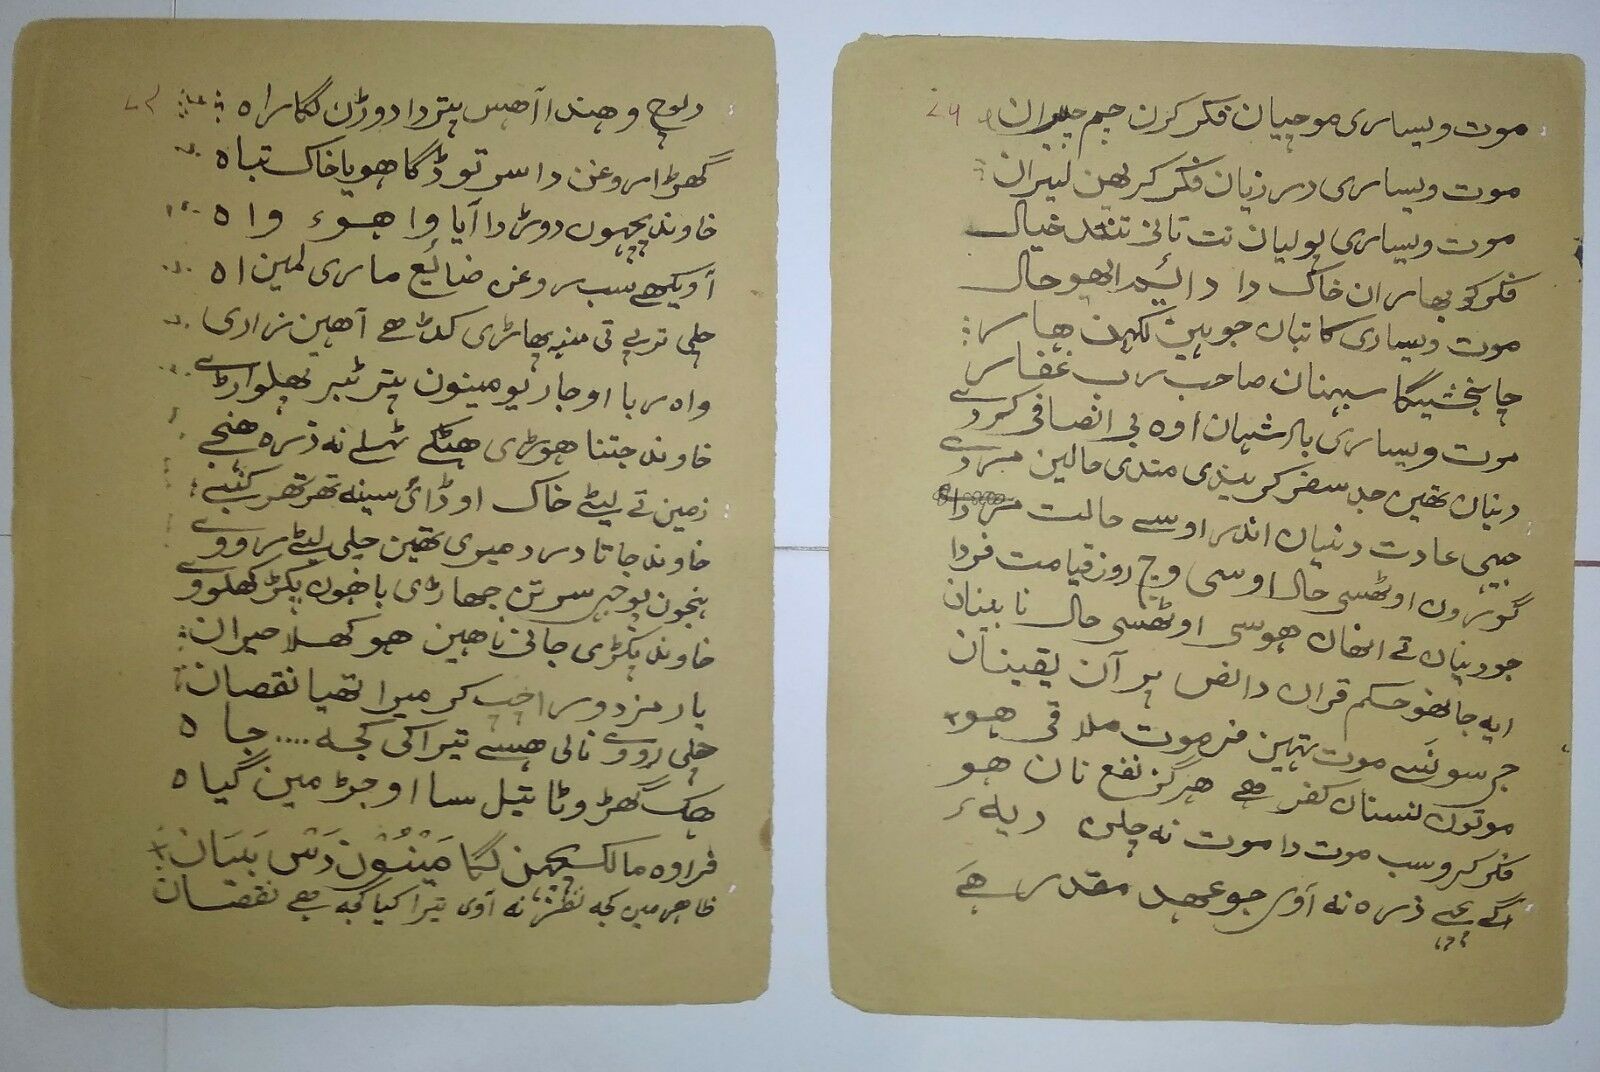 موت ویساری موچیان فکر کرن چم چیران
موت ویساری درزیان فکر کر بهن لیران
موت ویساری پولیان نت تانی تنند خیال
فکر کو بهاران خاک دا دائیم ایهو حال
موت ویساری کاتبان جو بین لکهن هار
چا بخشیگا سبهنان صاحب رب غفار
موت ویساری بادشهان اوه بی انصافی کردے
دنیان تهین جد سفر کریندی مندی حالین مردے
جیبی عادت دنیان اندر اوسے حالت مردا
گورون اوٹهسی حال اوسی وچ روز قیامت فردا
جو دنیان تے انهان هوسی اوٹهسی حال نابینان
ایه جانهو حکم قران دا نص پر آن یقینان
جر سونسے موت تهین فرموت ملاقی هو
موتون نسنان کفر هے هرگز نفع نان هو
فکر کرو سب موت دا موت نه چلن دیه
اگے پچهے ذره نه آوی جو عهد مقدر هے
دلوچ وهندا آهس پتر دا دوڑن لگا راه
گهڑا روغن دا سر تو ڈگا هویا خاک تباه
خاوند پچهون دوڑدا آیا واهوء واه
آ ویکهے سب روغن ضائع ماری لمین اه
چلی تربے تی منه پهاڑی کڈهے آهین زاری
واه ربا اوجاڑیو مینون پتر ٹبر پهلواڑی
خاوند جتنا هوڑی هٹکے ٹهلے نه ذره هنجے
زمین تے لیٹے خاک اوڈائ سینه تهر تهر کنبے
خاوند جاتا درد میری تهین چلی لیٹے رووے
هنجون پونجی سر تن جهاڑی باهون پکڑ کهلووے
خاوند پکڑی جانی ناهین هو کهلا حیران
یار مزدورا چپ کر میرا تهیا نقصان
چلی رووے نالی هسے تیرا کی کجه .... جاه
هک گهڑوٹا تیل سا اوجڑ مین گیاه
فر اوه مالک پچهن لگا مینون دس بیان
ظاهر مین کجه نظر نه آوی تیرا کیا کجه هے نقصان